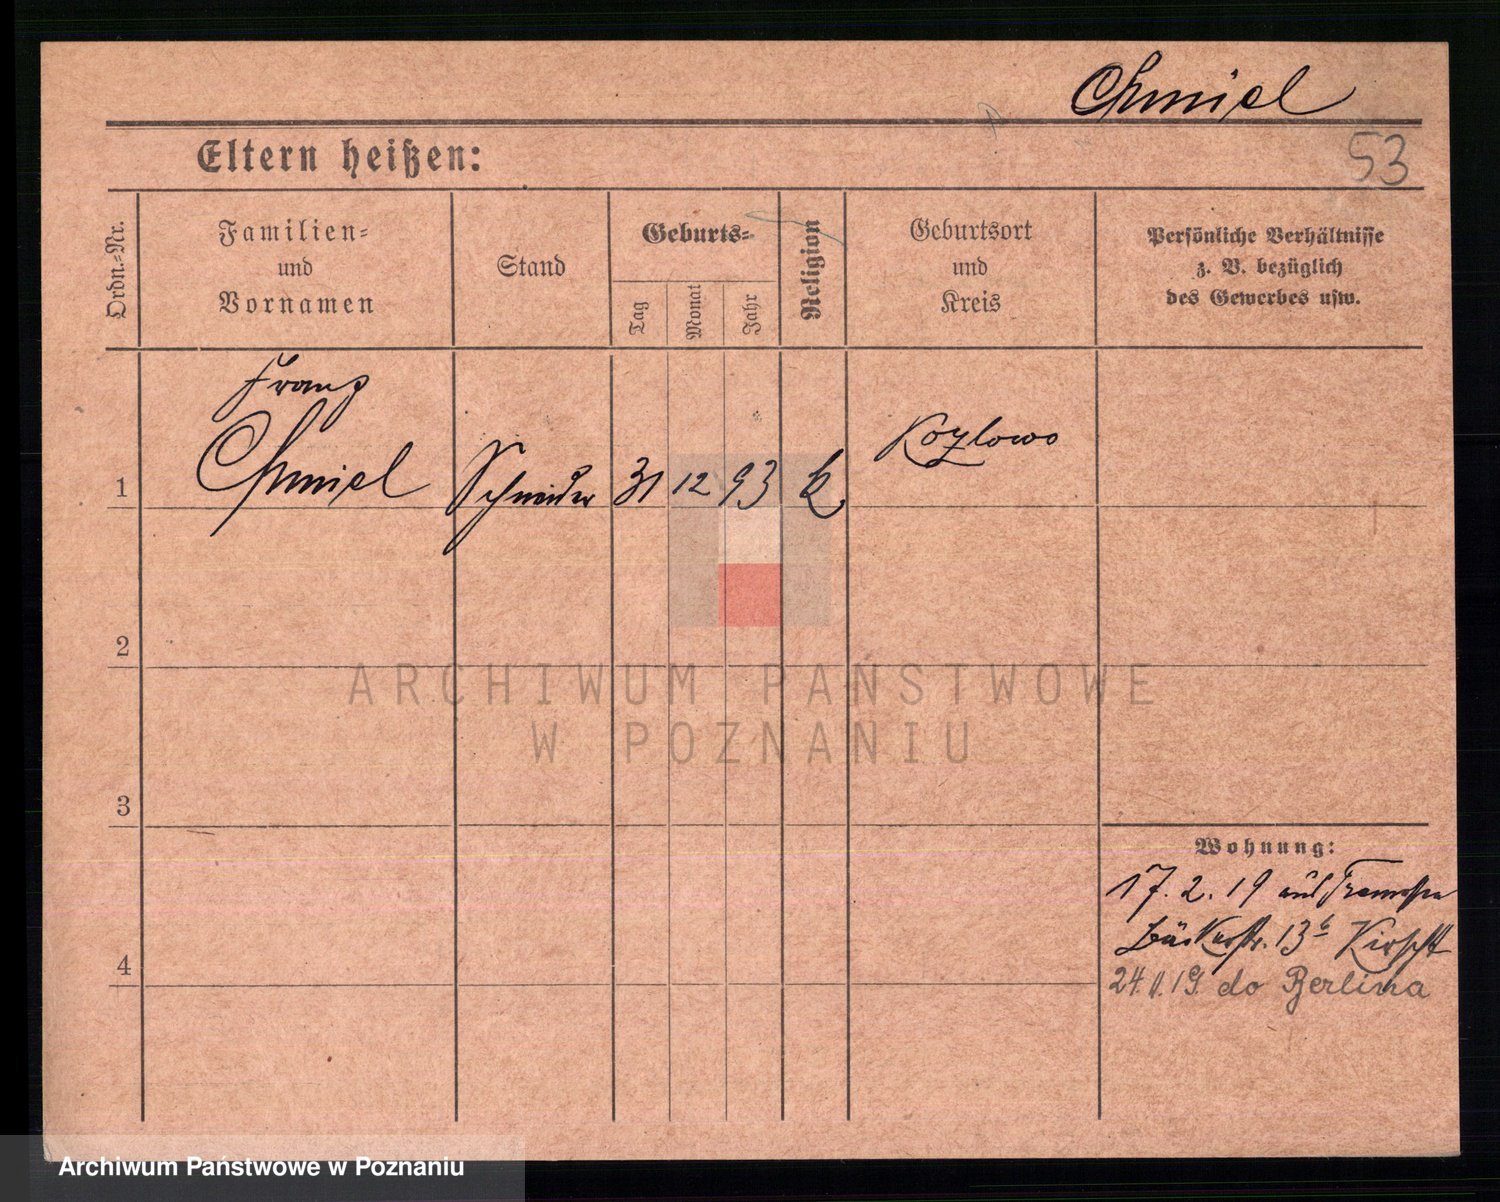 Chmiel
53
Eltern heißen:
Ordn.-Nr.
Familien-
und
Vornamen
Stand
Geburts-
Tag
Monat
Jahr
Religion
Geburtsort
und
Kreis
Persönliche Verhältnisse
z. B. bezüglich
des Gewerbes usw.
Franz
Chmiel
1
Schneider
31
12
93
k.
Kozlowo
2
ARCHIWUM PAŃSTWOWE
W POZNANIU
3
Wohnung:
17. 2. 19 aus Tremessen
Bäckerstr. 13b
4
24. 19. do Berlina
Archiwum Państwowe w Poznaniu